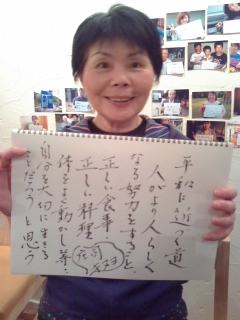 平和に近づく道
人がより人らしく
なる努力をすること
正しい食事
正しい料理
体をよく動かし等…
自分を大切に生きる
ことだろうと思う